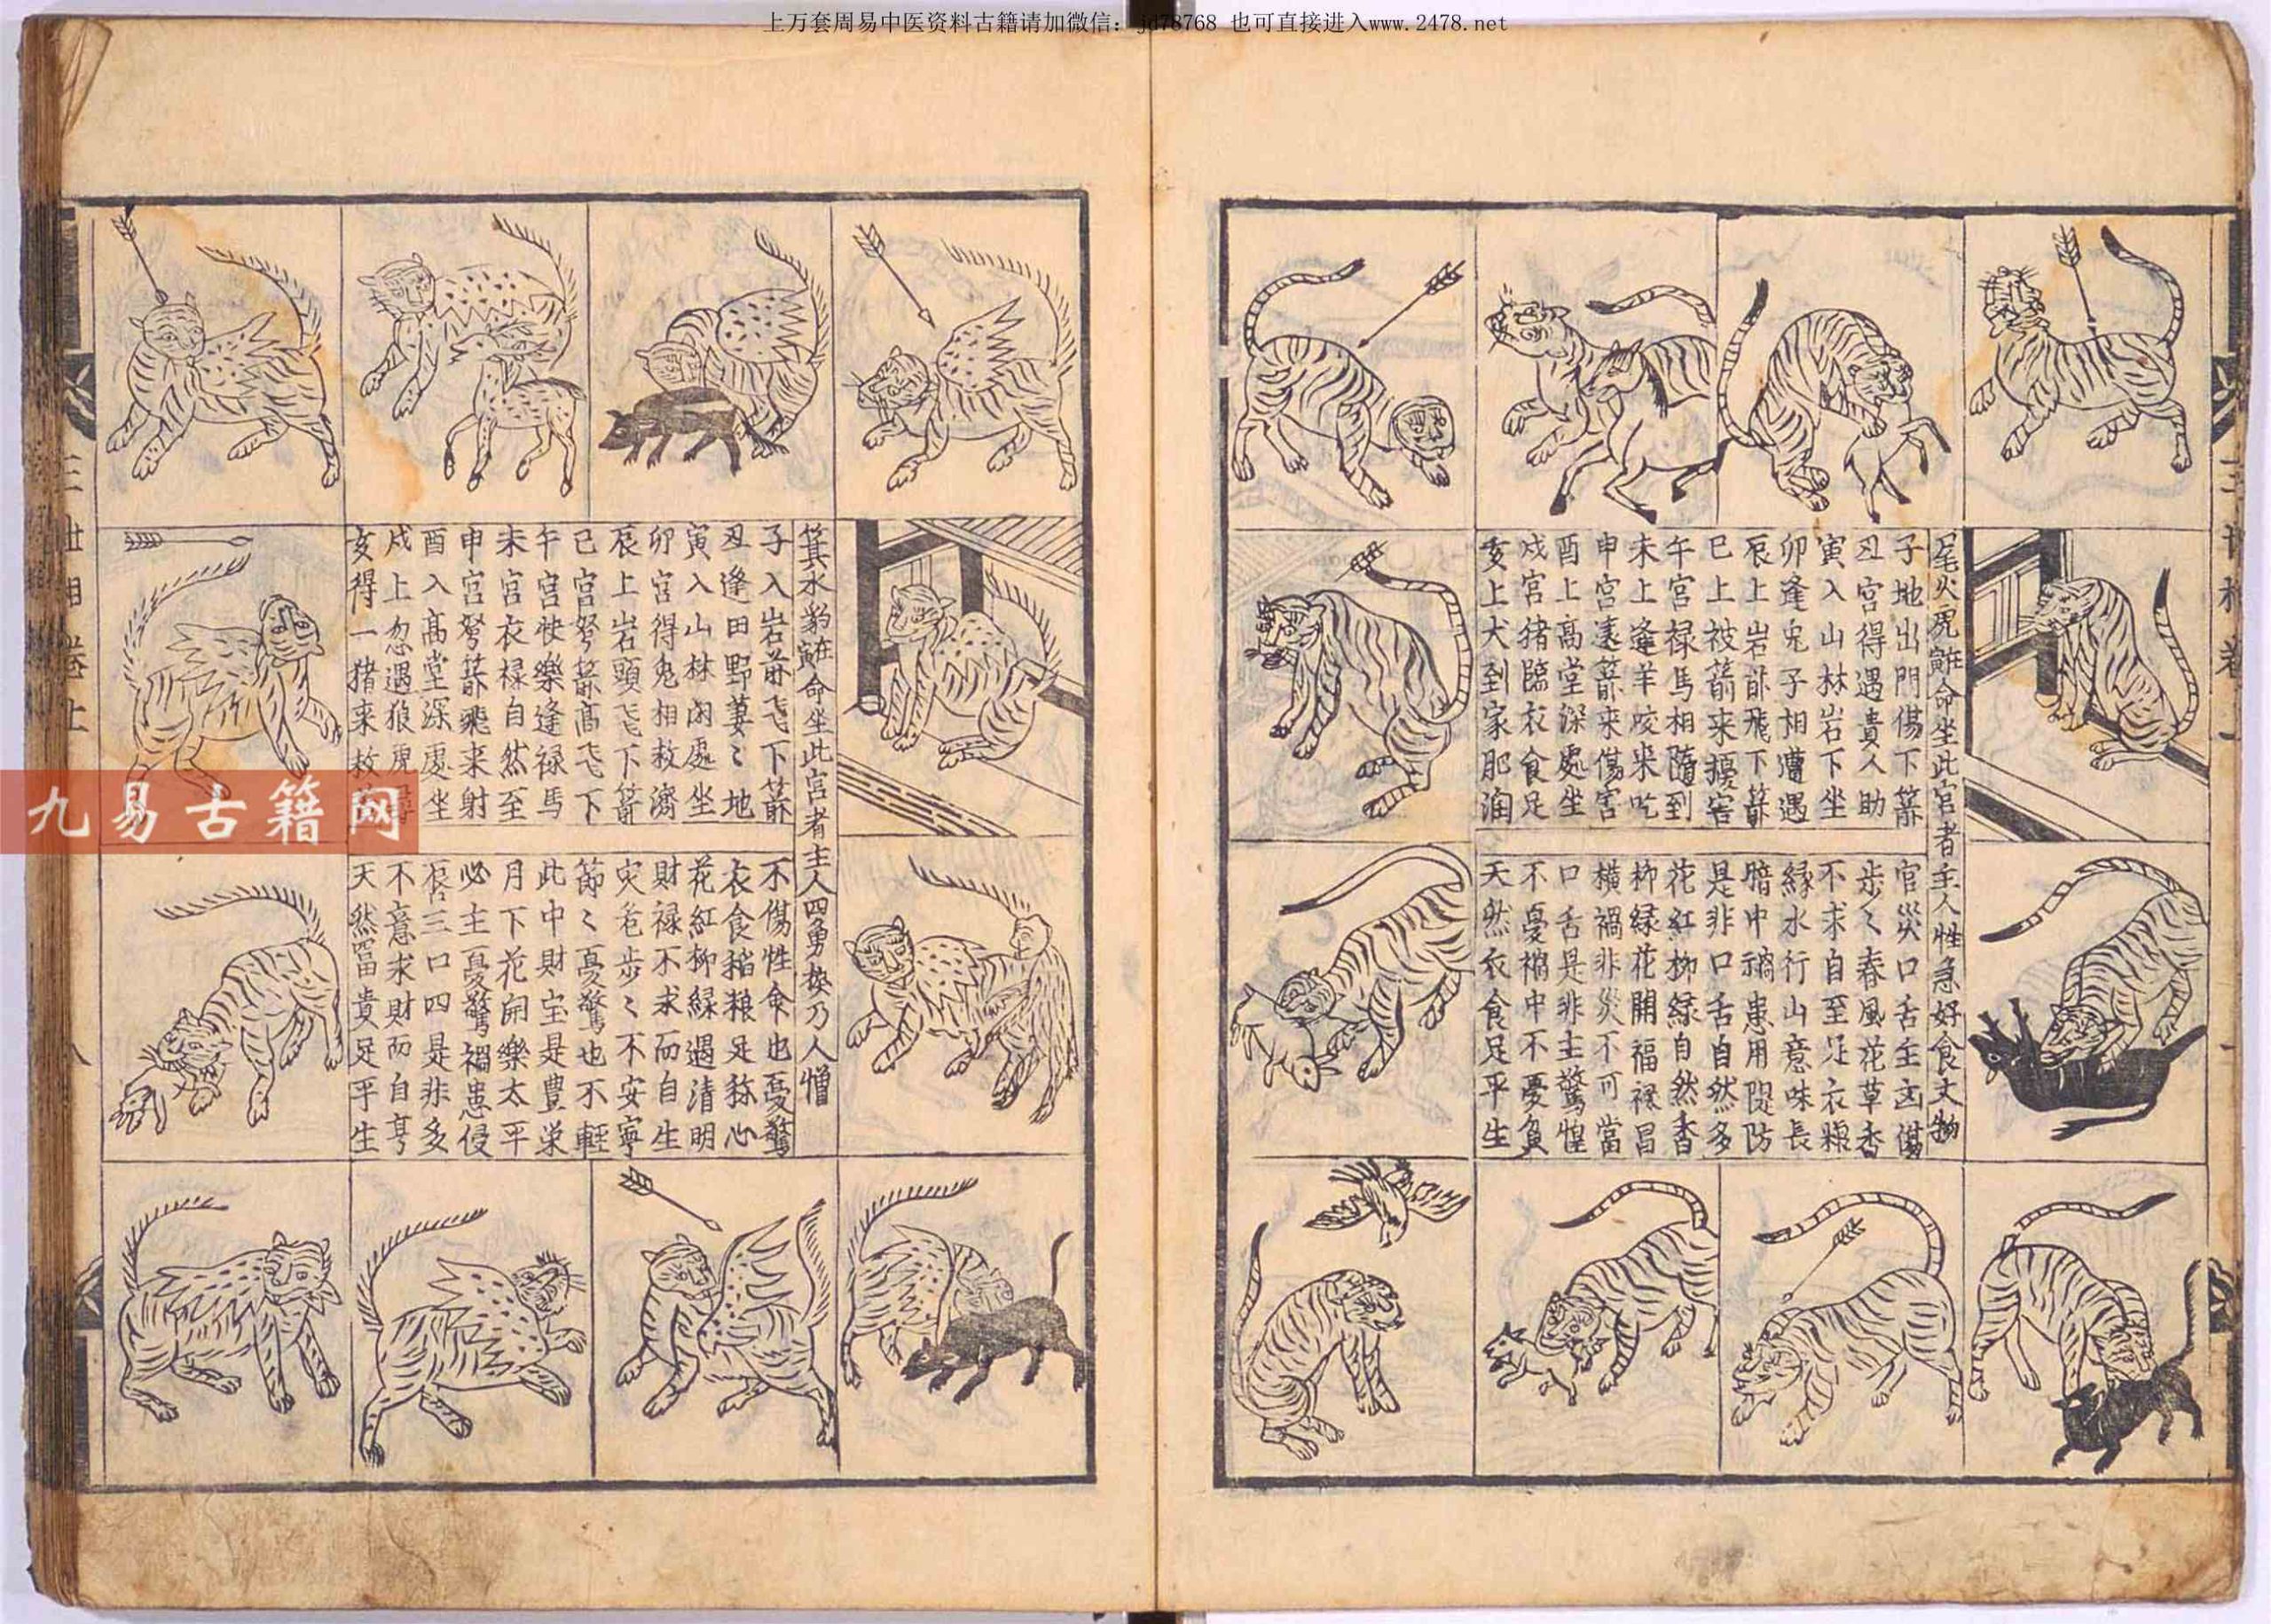 上万套周易中医资料古籍请加微信：jd78768 也可直接进入www.2478.net
尾火虎 命坐此宫者主人性急好食
子地出門傷下箭
丑宫得遇貴人助
寅入山林岩下坐
卯逢兎子相遭遇
辰上岩前飛下箭
巳上被箭来擾害
午宫禄馬相隨到
未上逢羊咬来吃
申宫遠箭来傷害
酉上高堂深處坐
戌宫猪臨衣食足
亥上犬到家肥潤
官災口舌主凶傷
步〻春風花草香
不求自至足衣粮
緑水行山意味長
暗中禍患用隄防
是非口舌自然多
花紅柳緑自然香
柳緑花開福禄昌
横禍非災不可當
口舌是非主驚惶
不憂禍中不憂負
天然衣食足平生
箕水豹在寅命坐此宫者主人 勇 乃人憎
子入岩前飞下箭
丑逢田野萋〻地
寅入山林閑處坐
卯宫得兎相救濟
辰上岩頭飞下箭
巳宫弩箭高飞下
午宫快樂逢禄馬
未宫衣禄自然至
申宫弩箭飛来射
酉入高堂深處坐
戌上忽遇狼虎
亥得一猪来救
不傷性命也憂驚
衣食稻粮足称心
花紅柳緑遇清明
財禄不求而自生
災危步〻不安寧
節〻憂驚也不輕
此中財宝是豊栄
月下花開樂太平
必主憂驚禍患侵
三口四是非多
不意求財而自亨
天然富貴足平生
九易古籍网
三世相卷上